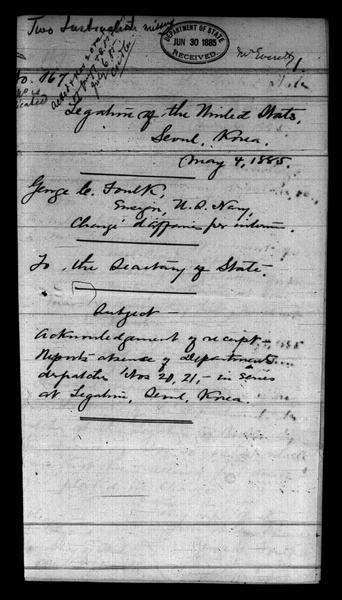 Two Instructions missing
DEPARTMENT OF STATE
JUN 30 1885
RECEIVED.
McEverett
No. 167
Legation of the United States,
Seoul, Korea.
May 4, 1885.
George C. Foulk,
Ensign, U.S. Navy,
Chargé d'affaires per interim.
To, the Secretary of State.
Subject —
Acknowledgement of receipt —
Reports absence of Department's
despatches Nos 20, 21, — in series
at Legation, Seoul, Korea.